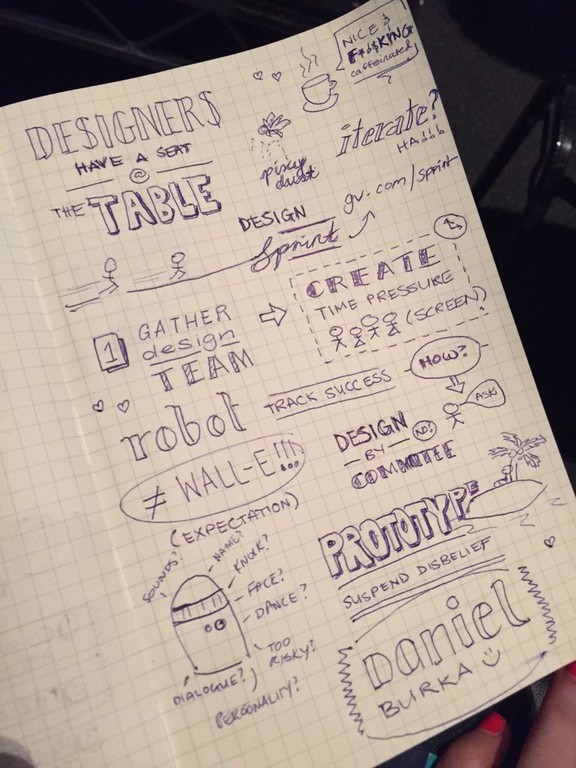 NICE &
F*@$KING*
caffeinated
DESIGNERS
HAVE A SEAT
@
THE TABLE
pixy
dust
iterate?
HA!!!
DESIGN
Sprint
gv.com/sprint
1
GATHER
design
TEAM
CREATE
TIME PRESSURE
(SCREEN)
HOW?
ASK
TRACK SUCCESS
robot
≠ WALL-E!!!
(EXPECTATION)
DESIGN
BY
NO!
COMMITTEE
PROTOTYPE
SUSPEND DISBELIEF
SOUNDS?
NAME?
KNOCK?
FACE?
DANCE?
TOO
RISKY?
DIALOGUE?
PERSONALITY?
Daniel
BURKA